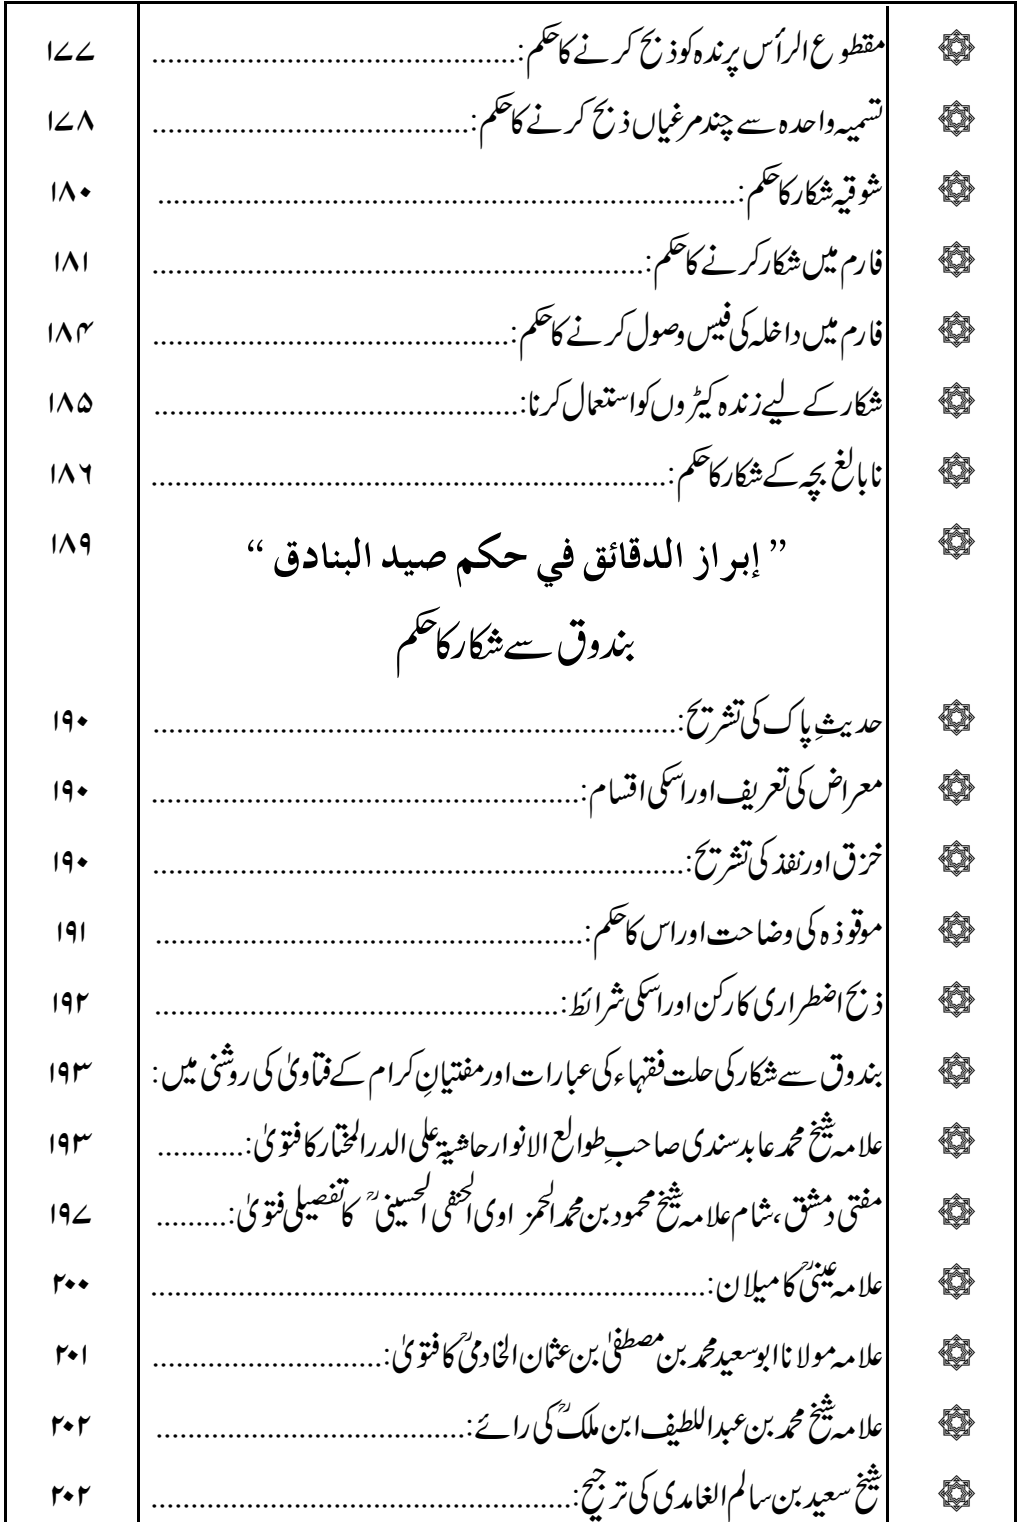 مقطوع الرأس پرندہ کو ذبح کرنے کا حکم: ............ ۱۷۷
تسمیہ واحدہ سے چند مرغیاں ذبح کرنے کا حکم: ............ ۱۷۸
شوقیہ شکار کا حکم: ............ ۱۸۰
فارم میں شکار کرنے کا حکم: ............ ۱۸۱
فارم میں داخلہ کی فیس وصول کرنے کا حکم: ............ ۱۸۴
شکار کے لیے زندہ کیڑوں کو استعمال کرنا: ............ ۱۸۵
نابالغ بچہ کے شکار کا حکم: ............ ۱۸۶
”إبراز الدقائق في حكم صيد البنادق“ ۱۸۹
بندوق سے شکار کا حکم
حدیثِ پاک کی تشریح: ............ ۱۹۰
معراض کی تعریف اور اسکی اقسام: ............ ۱۹۰
خزق اور نفذ کی تشریح: ............ ۱۹۰
موقوذہ کی وضاحت اور اس کا حکم: ............ ۱۹۱
ذبح اضطراری کا رکن اور اسکی شرائط: ............ ۱۹۲
بندوق سے شکار کی حلت فقہاء کی عبارات اور مفتیانِ کرام کے فتاویٰ کی روشنی میں: ۱۹۳
علامہ شیخ محمد عابد سندی صاحبِ طوالع الانوار حاشیۃ علی الدر المختار کا فتویٰ: ............ ۱۹۳
مفتی دمشق، شام علامہ شیخ محمود بن محمد الحمزاوی الحنفی الحسینیؒ کا تفصیلی فتویٰ: ......... ۱۹۷
علامہ عینیؒ کا میلان: ............ ۲۰۰
علامہ مولانا ابوسعید محمد بن مصطفیٰ بن عثمان الخادمیؒ کا فتویٰ: ............ ۲۰۱
علامہ شیخ محمد بن عبداللطیف ابن ملکؒ کی رائے: ............ ۲۰۲
شیخ سعید بن سالم الغامدی کی ترجیح: ............ ۲۰۲